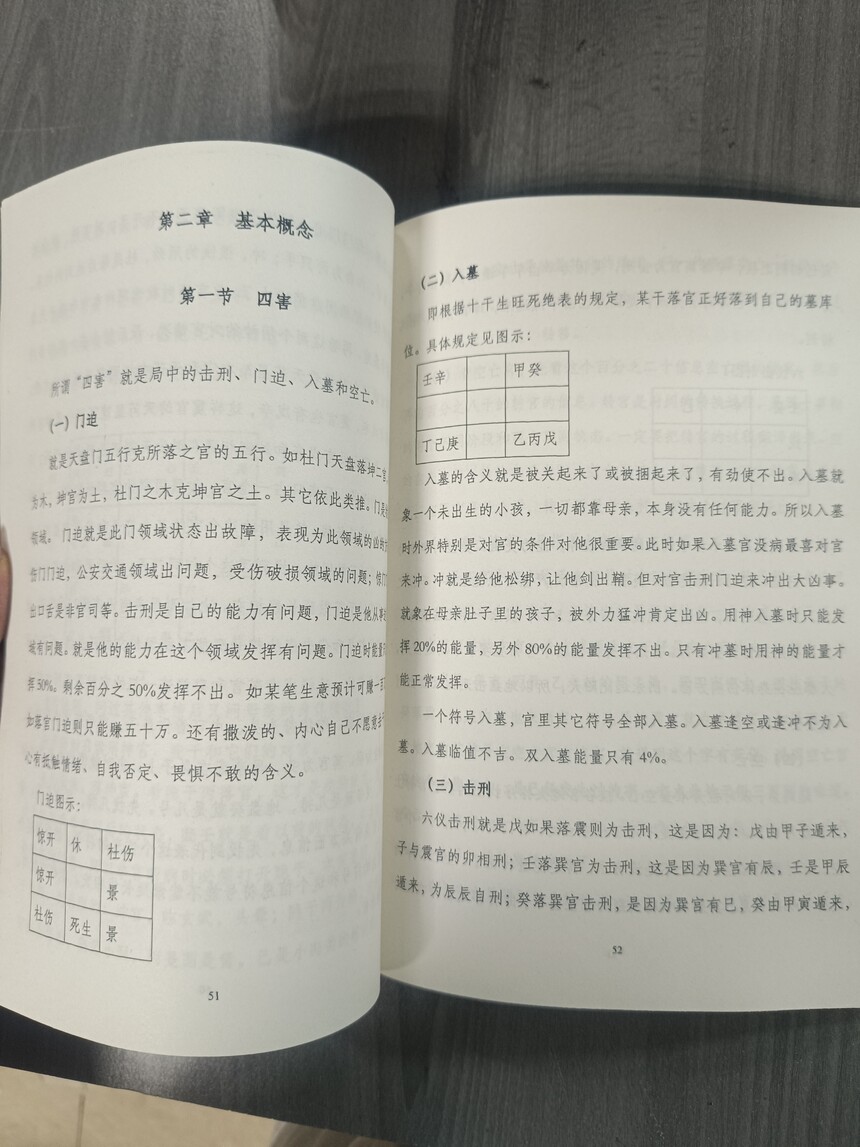 第二章 基本概念
第一节 四害
所谓“四害”就是局中的击刑、门迫、入墓和空亡。
(一)门迫
就是天盘门五行克所落之宫的五行。如杜门天盘落坤二宫,
为木,坤宫为土,杜门之木克坤宫之土。其它依此类推。门是
领域。门迫就是此门领域状态出故障,表现为此领域的凶
伤门门迫,公安交通领域出问题,受伤破损领域的问题;惊门
出口舌是非官司等。击刑是自己的能力有问题,门迫是他从事
域有问题。就是他的能力在这个领域发挥有问题。门迫时能量
挥50%。剩余百分之50%发挥不出。如某笔生意预计可赚一百
如落宫门迫则只能赚五十万。还有撒泼的、内心自己不愿意
心有抵触情绪、自我否定、畏惧不敢的含义。
门迫图示:
惊开 休 杜伤
惊开 景
杜伤 死生 景
51
(二)入墓
即根据十干生旺死绝表的规定,某干落宫正好落到自己的墓库
位。具体规定见图示:
壬辛 甲癸
丁己庚 乙丙戊
入墓的含义就是被关起来了或被捆起来了,有劲使不出。入墓就
象一个未出生的小孩,一切都靠母亲,本身没有任何能力。所以入墓
时外界特别是对宫的条件对他很重要。此时如果入墓宫没病最喜对宫
来冲。冲就是给他松绑,让他剑出鞘。但对宫击刑门迫来冲出大凶事。
就象在母亲肚子里的孩子,被外力猛冲肯定出凶。用神入墓时只能发
挥20%的能量,另外80%的能量发挥不出。只有冲墓时用神的能量才
能正常发挥。
一个符号入墓,宫里其它符号全部入墓。入墓逢空或逢冲不为入
墓。入墓临值不吉。双入墓能量只有4%。
(三)击刑
六仪击刑就是戊如果落震则为击刑,这是因为:戊由甲子遁来,
子与震宫的卯相刑;壬落巽宫为击刑,这是因为巽宫有辰,壬是甲辰
遁来,为辰辰自刑;癸落巽宫击刑,是因为巽宫有巳,癸由甲寅遁来,
52